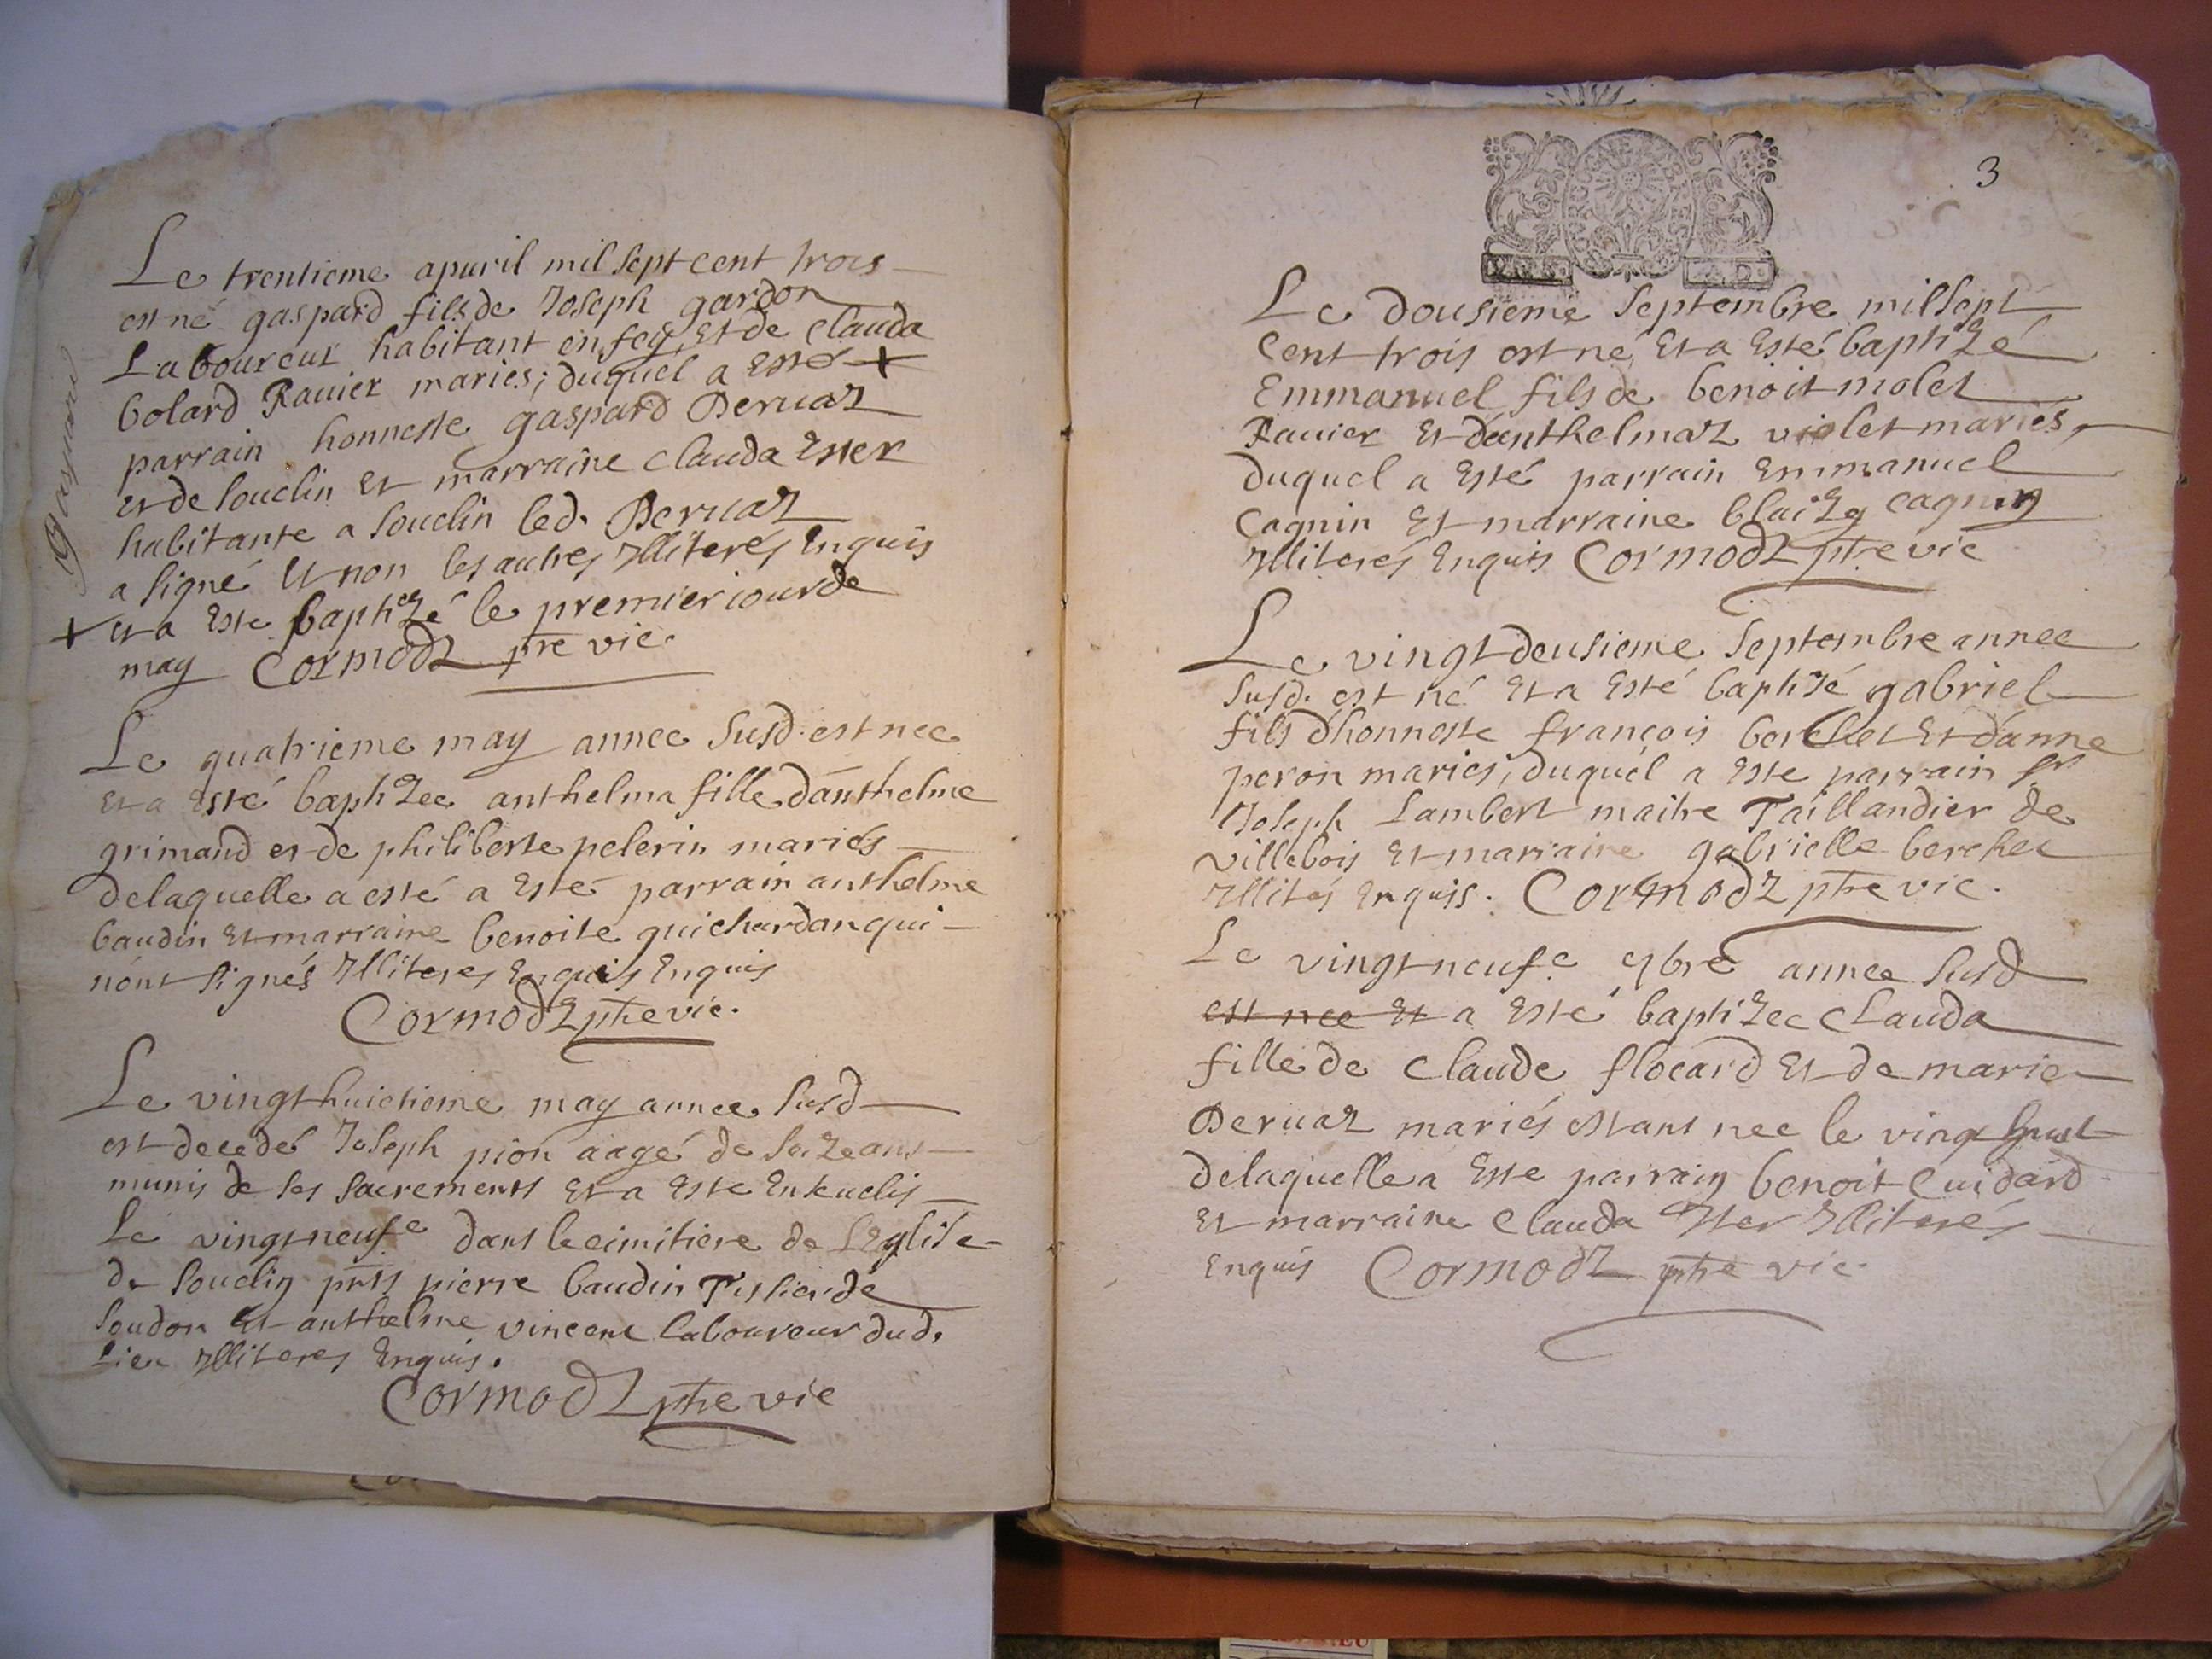 Gaspard
Le trentieme apuril mil sept cent trois
est né gaspard fils de Joseph gardon
Laboureur habitant en fay, Et de Clauda
bolard Rauier mariés; duquel a Esté +
parrain honneste gaspard Deruaz
et de souclin Et marraine Clauda Ester
habitante a souclin led. Deruaz
a signé Et non les autres Illiterés Enquis
+ et a Este baptizé le premier iour de
may Cormodz ptre vic.
Le quatrieme may annee susd. est nee
Et a Esté baptizee anthelma fille d'anthelme
grimand et de philiberte pelerin mariés
delaquelle a esté a Este parrain anthelme
baudin Et marraine benoite guichardan qui
n'ont signés Illiteres Enquis Enquis
Cormodz ptre vic.
Le vingt huictieme may annee susd
est decedé Joseph pion aagé de seize ans
munis de ses sacrements Et a Este Enseuelis
Le vingt neufe dans le cimitiere de L'Eglise
de souclin pnts pierre baudin Tissier de
soudon Et anthelme vincent laboureur dud.
Lieu Illiteres Enquis.
Cormodz ptre vic
3
Le dousieme septembre mil sept
Cent trois est né Et a Esté baptizé
Emmanuel fils de benoit molet
Rauier Et d'anthelmaz violet mariés,
duquel a Esté parrain Emmanuel
Cagnin Et marraine blaize cagnin
Illiterés Enquis Cormodz ptre vic
Le vingt deusieme septembre annee
susd. est né Et a Esté baptizé gabriel
fils d'honneste françois berchet Et d'anne
peron mariés, duquel a Este parrain sr
Joseph Lambert maitre Taillandier de
villebois Et marraine gabrielle berchet
Illités Enquis. Cormodz ptre vic.
Le vingt neufe 9bre annee susd
est nee Et a Esté baptizee Clauda
fille de Claude flocard Et de marie
Deruaz mariés estant nee le vingt huit
delaquelle a Este parrain benoit Cuidard
Et marraine Clauda Ister Illiterés
Enquis Cormodz ptre vic.